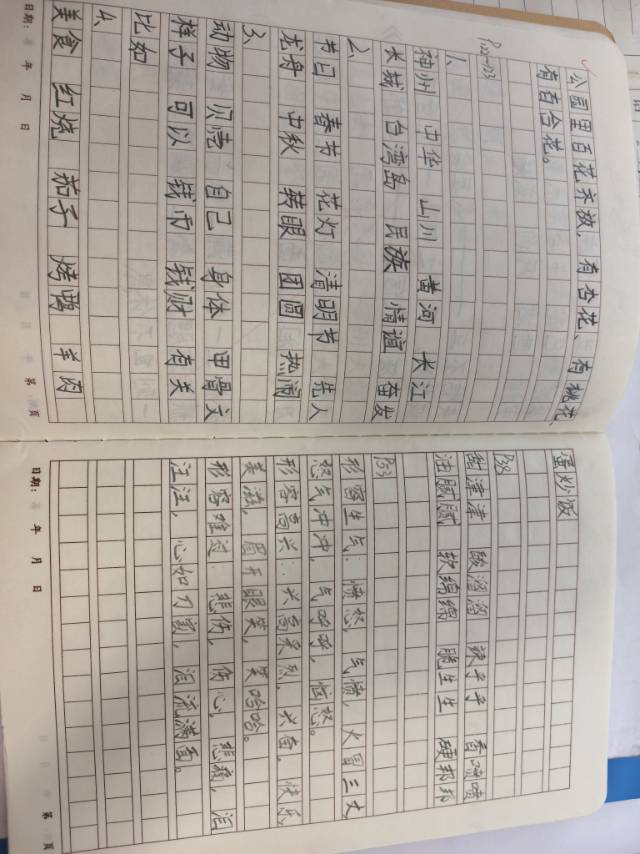 公园里百花齐放，有杏花、有桃花、
有百合花。
P22-P23
1、
神州 中华 山川 黄河 长江
长城 台湾岛 民族 情谊 奋发
2、
节日 春节 花灯 清明节 先人
龙舟 中秋 转眼 团圆 热闹
3、
动物 贝壳 自己 身体 甲骨文
样子 可以 钱币 钱财 有关
比如
4、
美食 红烧 茄子 烤鸭 羊肉
日期： 年 月 日
第 页
蛋炒饭
甜津津 酸溜溜 辣乎乎 香喷喷
油腻腻 软绵绵 脆生生 硬邦邦
P53
形容生气：愤怒，气愤，火冒三丈
怒气冲冲，气呼呼，恼怒。
形容高兴：兴高采烈，兴奋，快乐
美滋，眉开眼笑，笑哈哈。
形容难过：悲伤，伤心，悲痛，泪
汪汪，心如刀割，泪流满面。
日期： 年 月 日
第 页